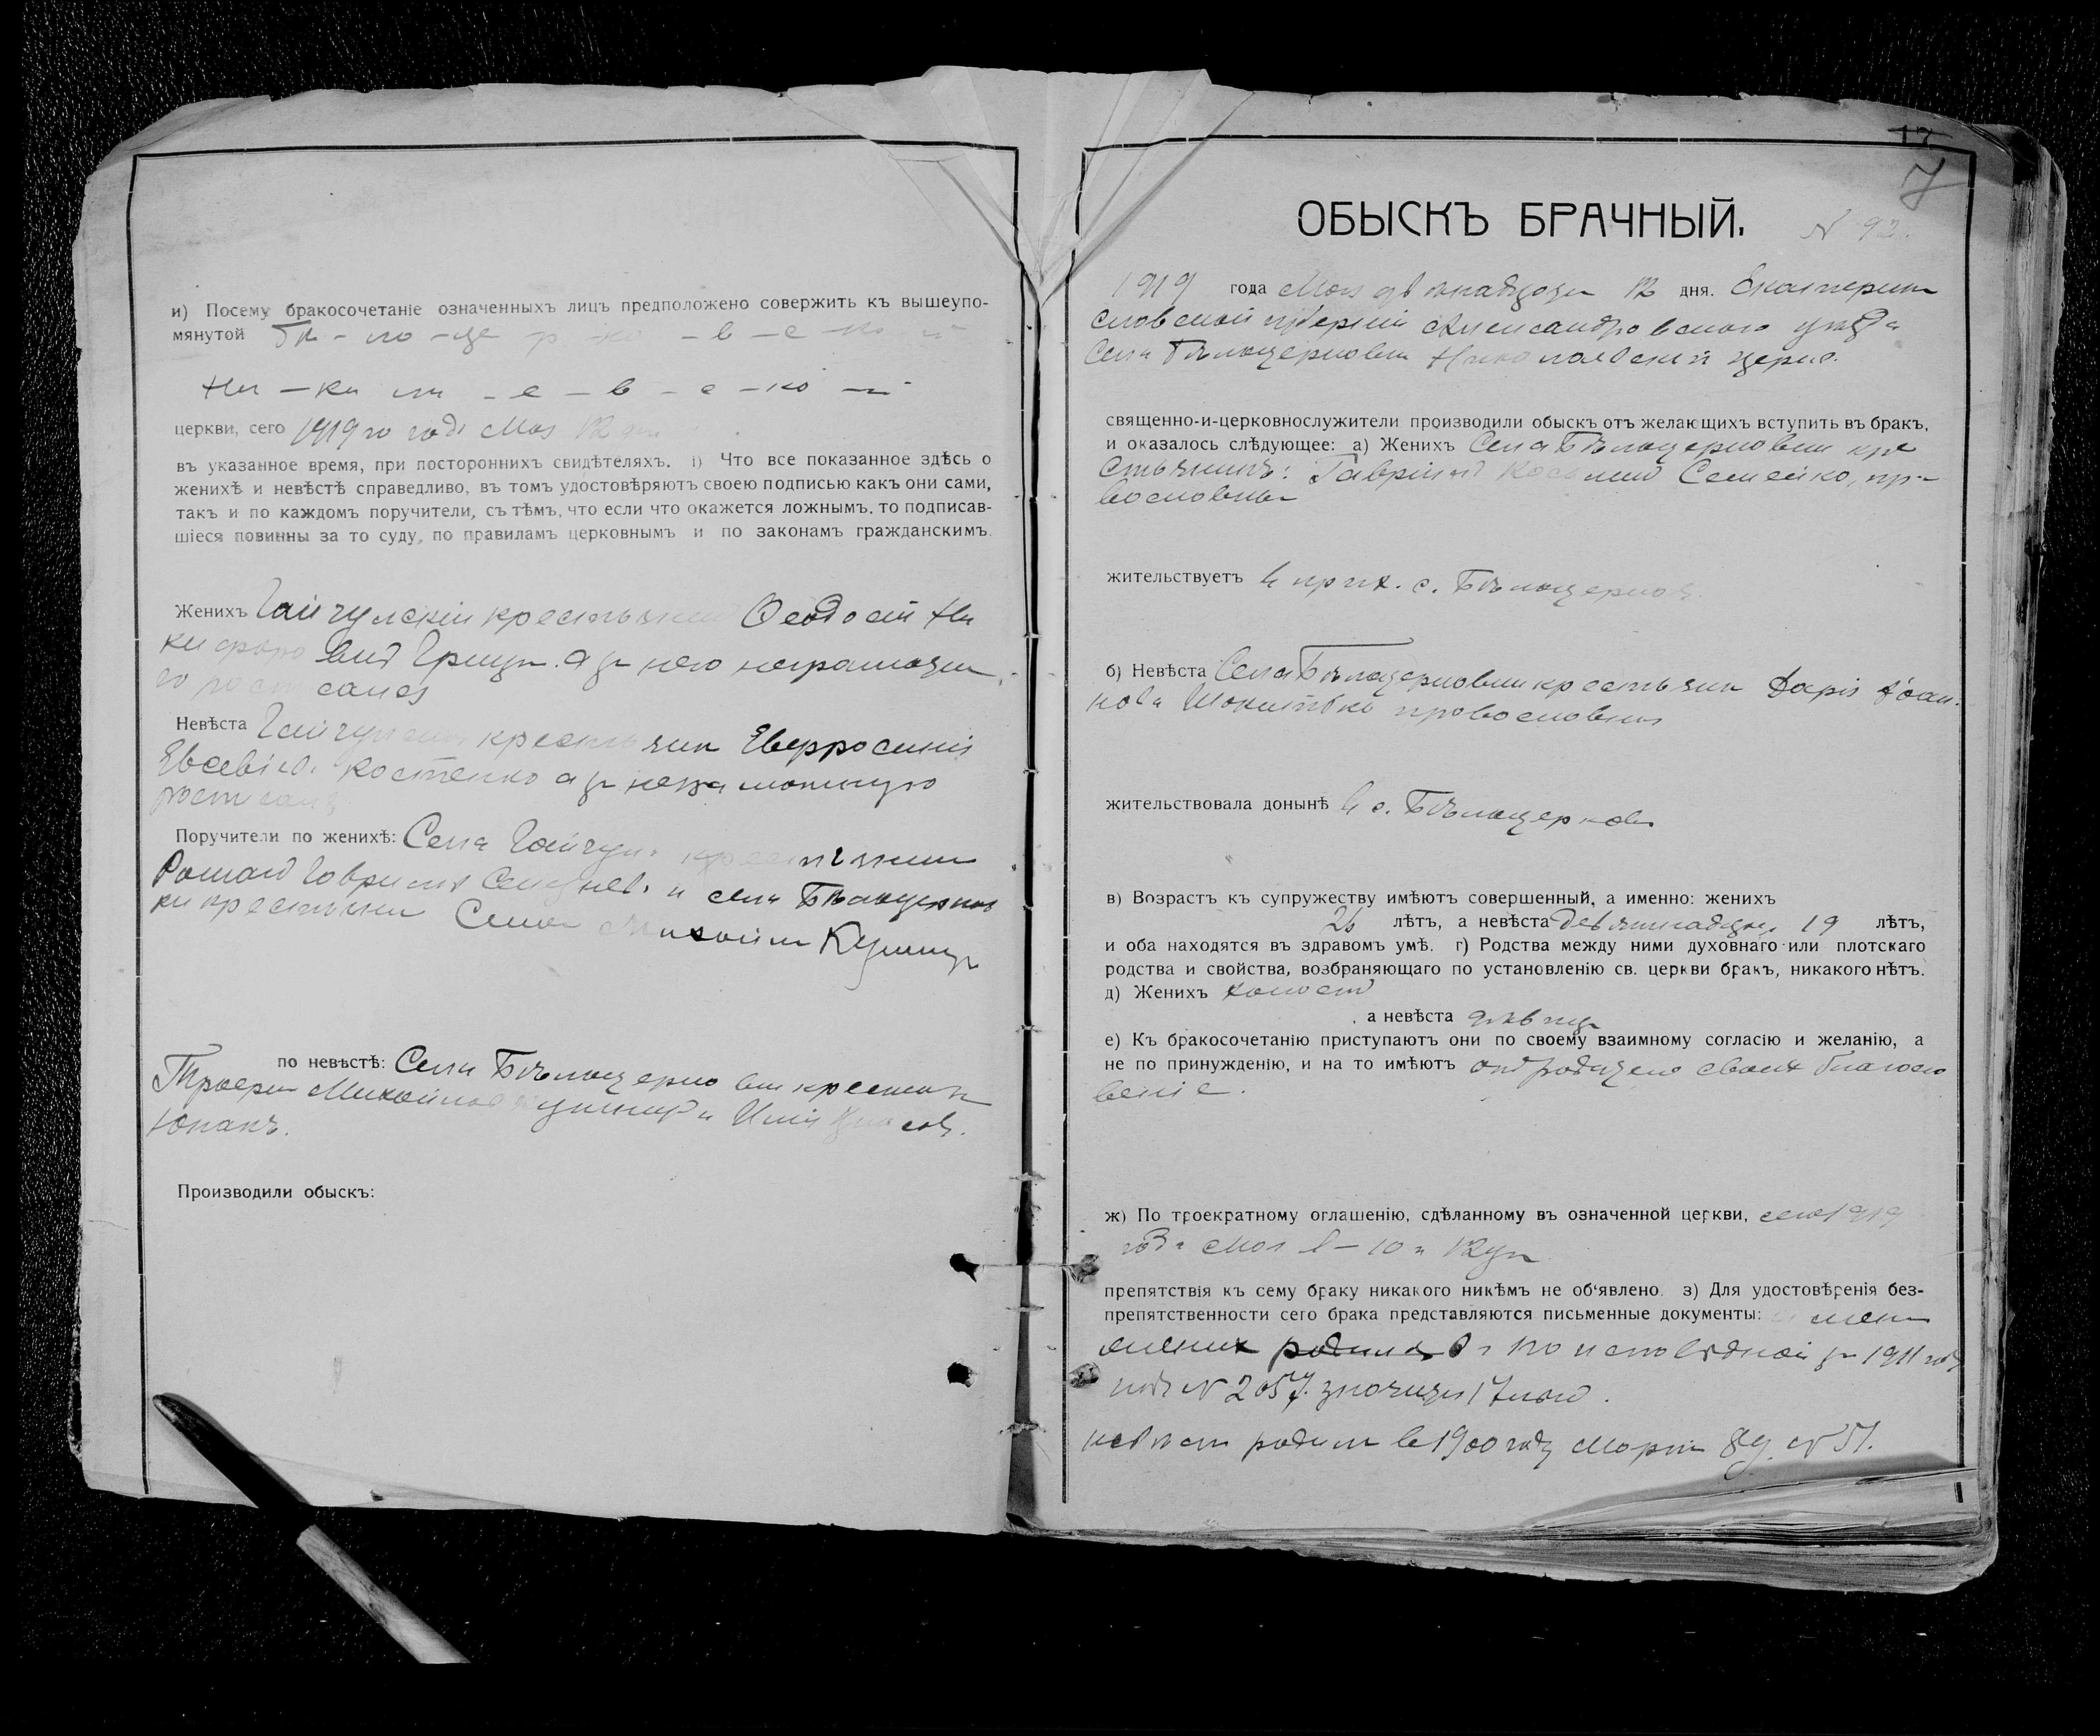 и) Посему бракосочетаніе означенныхъ лицъ предположено совержить къ вышеупо-
мянутой Бѣ - ло - це - р - ко - в - с - ко - й
Ни - ко ла - е - в - с - ко - й
церкви, сего 1919 го года Мая 12 дня
въ указанное время, при постороннихъ свидѣтеляхъ. і) Что все показанное здѣсь о
женихѣ и невѣстѣ справедливо, въ томъ удостовѣряютъ своею подписью какъ они сами,
такъ и по каждомъ поручители, съ тѣмъ, что если что окажется ложнымъ, то подписав-
шіеся повинны за то суду, по правиламъ церковнымъ и по законамъ гражданскимъ.
Женихъ Гайчулскій крестьянин Феодосій Ни
кифоро вич Грищ. а за него неграмотн
го росписался
Невѣста крестьянк Евфросинія
Евсевіев. Костенко а за неграмотную
росписался
Поручители по женихѣ: Села Гайчул крестьянин
Роман Гаврилов и села Бѣлоцерков
ки крестьянин Семен Михайлов Кушнир
по невѣстѣ: Села Бѣлоцерковки крестьян
Трофим Михайлов Кушнир и Илія Власов.
Юпакъ.
Производили обыскъ:
17
7
ОБЫСКЪ БРАЧНЫЙ.
N 92.
1919 года Мая двѣнадцаго 12 дня. Екатерино
славской губерніи Александровскаго уѣзда
Села Бѣлоцерковки Николаевской церкв.
священно-и-церковнослужители производили обыскъ отъ желающихъ вступить въ бракъ,
и оказалось слѣдующее: а) Женихъ Села Бѣлоцерковки кре
стьянинъ: Гавріил Косьмин Семейко, пра
вославны
жительствуетъ в прих. с. Бѣлоцерков.
б) Невѣста Села Бѣлоцерковки крестьянк Дарія Іоан-
нова православная
жительствовала донынѣ в с. Бѣлоцерков
в) Возрастъ къ супружеству имѣютъ совершенный, а именно: женихъ
26 лѣтъ, а невѣста девятнадцат 19 лѣтъ,
и оба находятся въ здравомъ умѣ. г) Родства между ними духовнаго или плотскаго
родства и свойства, возбраняющаго по установленію св. церкви бракъ, никакого нѣтъ.
д) Женихъ холост
, а невѣста дѣвица
е) Къ бракосочетанію приступаютъ они по своему взаимному согласію и желанію, а
не по принужденію, и на то имѣютъ от родителей своих благосло
веніе.
ж) По троекратному оглашенію, сдѣланному въ означенной церкви, сего 1919
года Мая 8 - 10 и 12 дн
препятствія къ сему браку никакого никѣмъ не об'явлено. з) Для удостовѣренія без-
препятственности сего брака представляются письменные документы:
жених родился по исповѣдной за 1911 год
под N 2057. значится 17 лет.
невѣста родилась в 1900 году Марта 8 д. N 51.